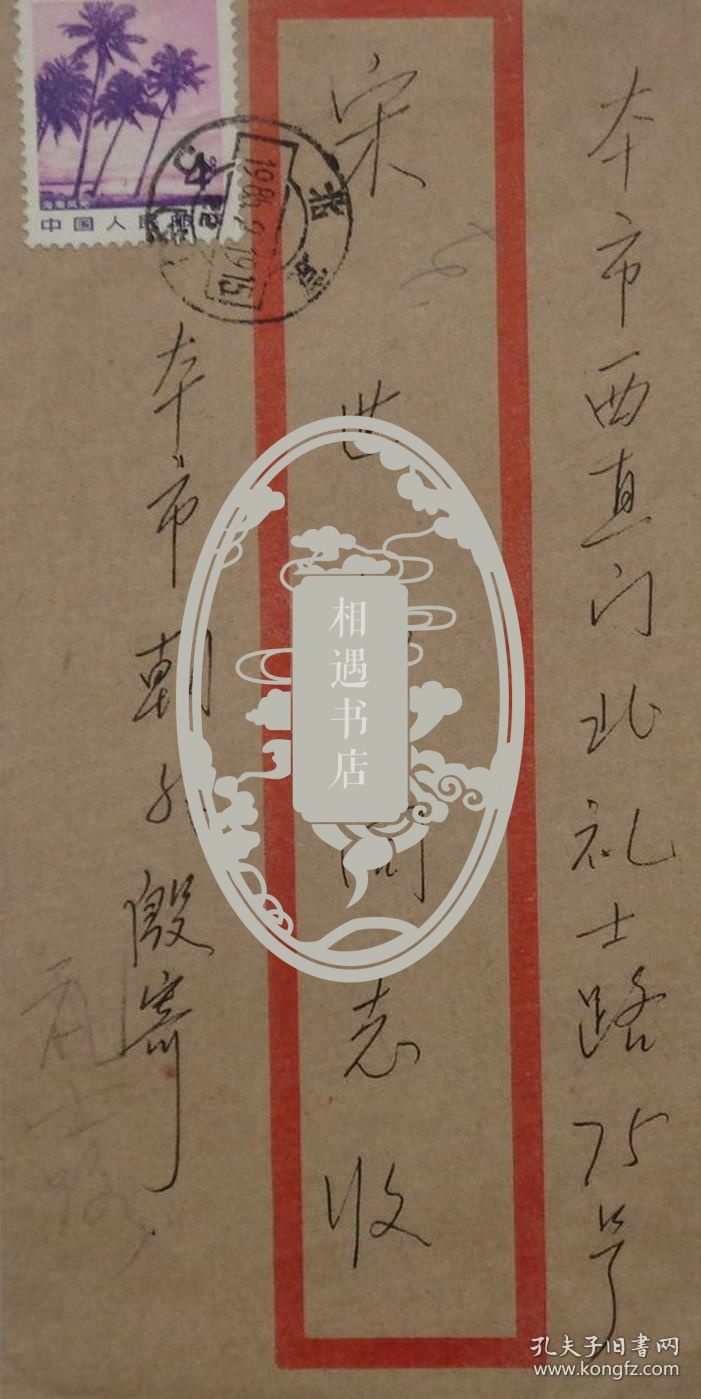 本市西直门北礼士路75号
宋世 同志收
本市朝外殷寄
海南风光
中国人民邮政
北京
1986.9.19.15
相遇书店
孔夫子旧书网
www.kongfz.com